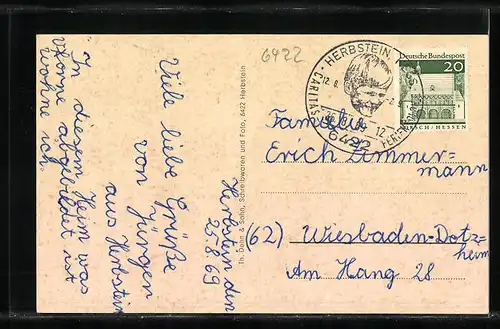 In diesem Heim was
vorne abgebildet ist
wohne ich.
Viele liebe Grüße
von Jürgen
aus Herbstein
Herbstein den
25.8.69
Th. Dehn & Sohn, Schreibwaren und Foto, 6422 Herbstein
6422
HERBSTEIN
CARITAS
6422
Deutsche Bundespost
20
LORSCH/HESSEN
Familie
Erich Zimmer=
mann
(62) Wiesbaden-Dotz=
heim
Am Hang 28